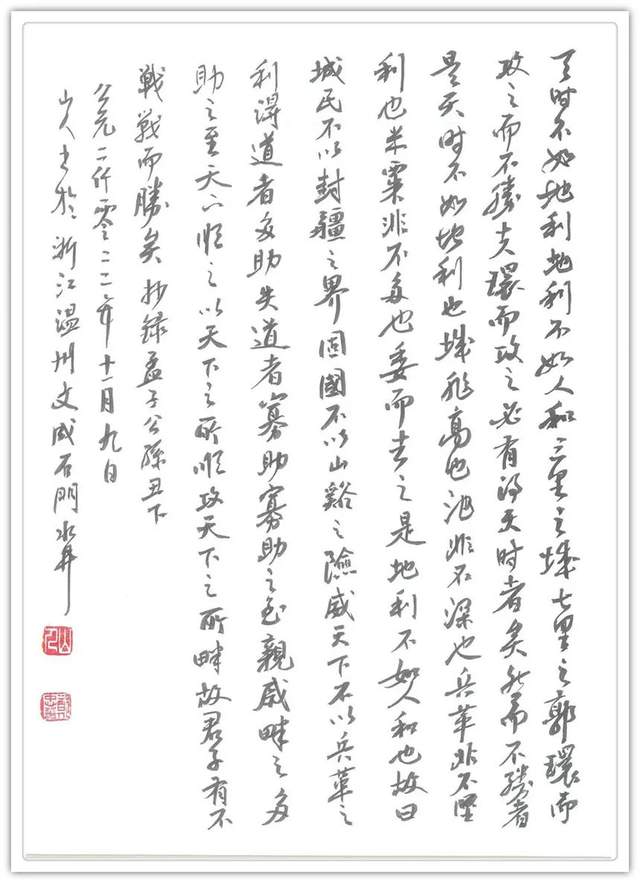 天时不如地利地利不如人和三里之城七里之郭環而
攻之而不勝夫環而攻之必有得天时者矣然而不勝者
是天时不如地利也城非高也池非不深也兵革非不堅
利也米粟非不多也委而去之是地利不如人和也故曰
城民不以封疆之界固國不以山谿之險威天下不以兵革之
利得道者多助失道者寡助寡助之至親戚畔之多
助之至天下順之以天下之所順攻天下之所畔故君子有不
戦戦而勝矣 抄録孟子公孫丑下
公元二仟零二二年十一月九日
山人书於浙江温州文成石門水井
山人